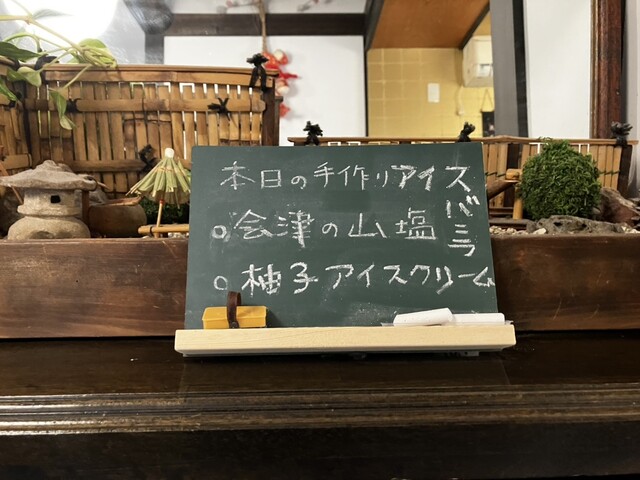 本日の手作りアイス
○会津の山塩バニラ
○柚子アイスクリーム